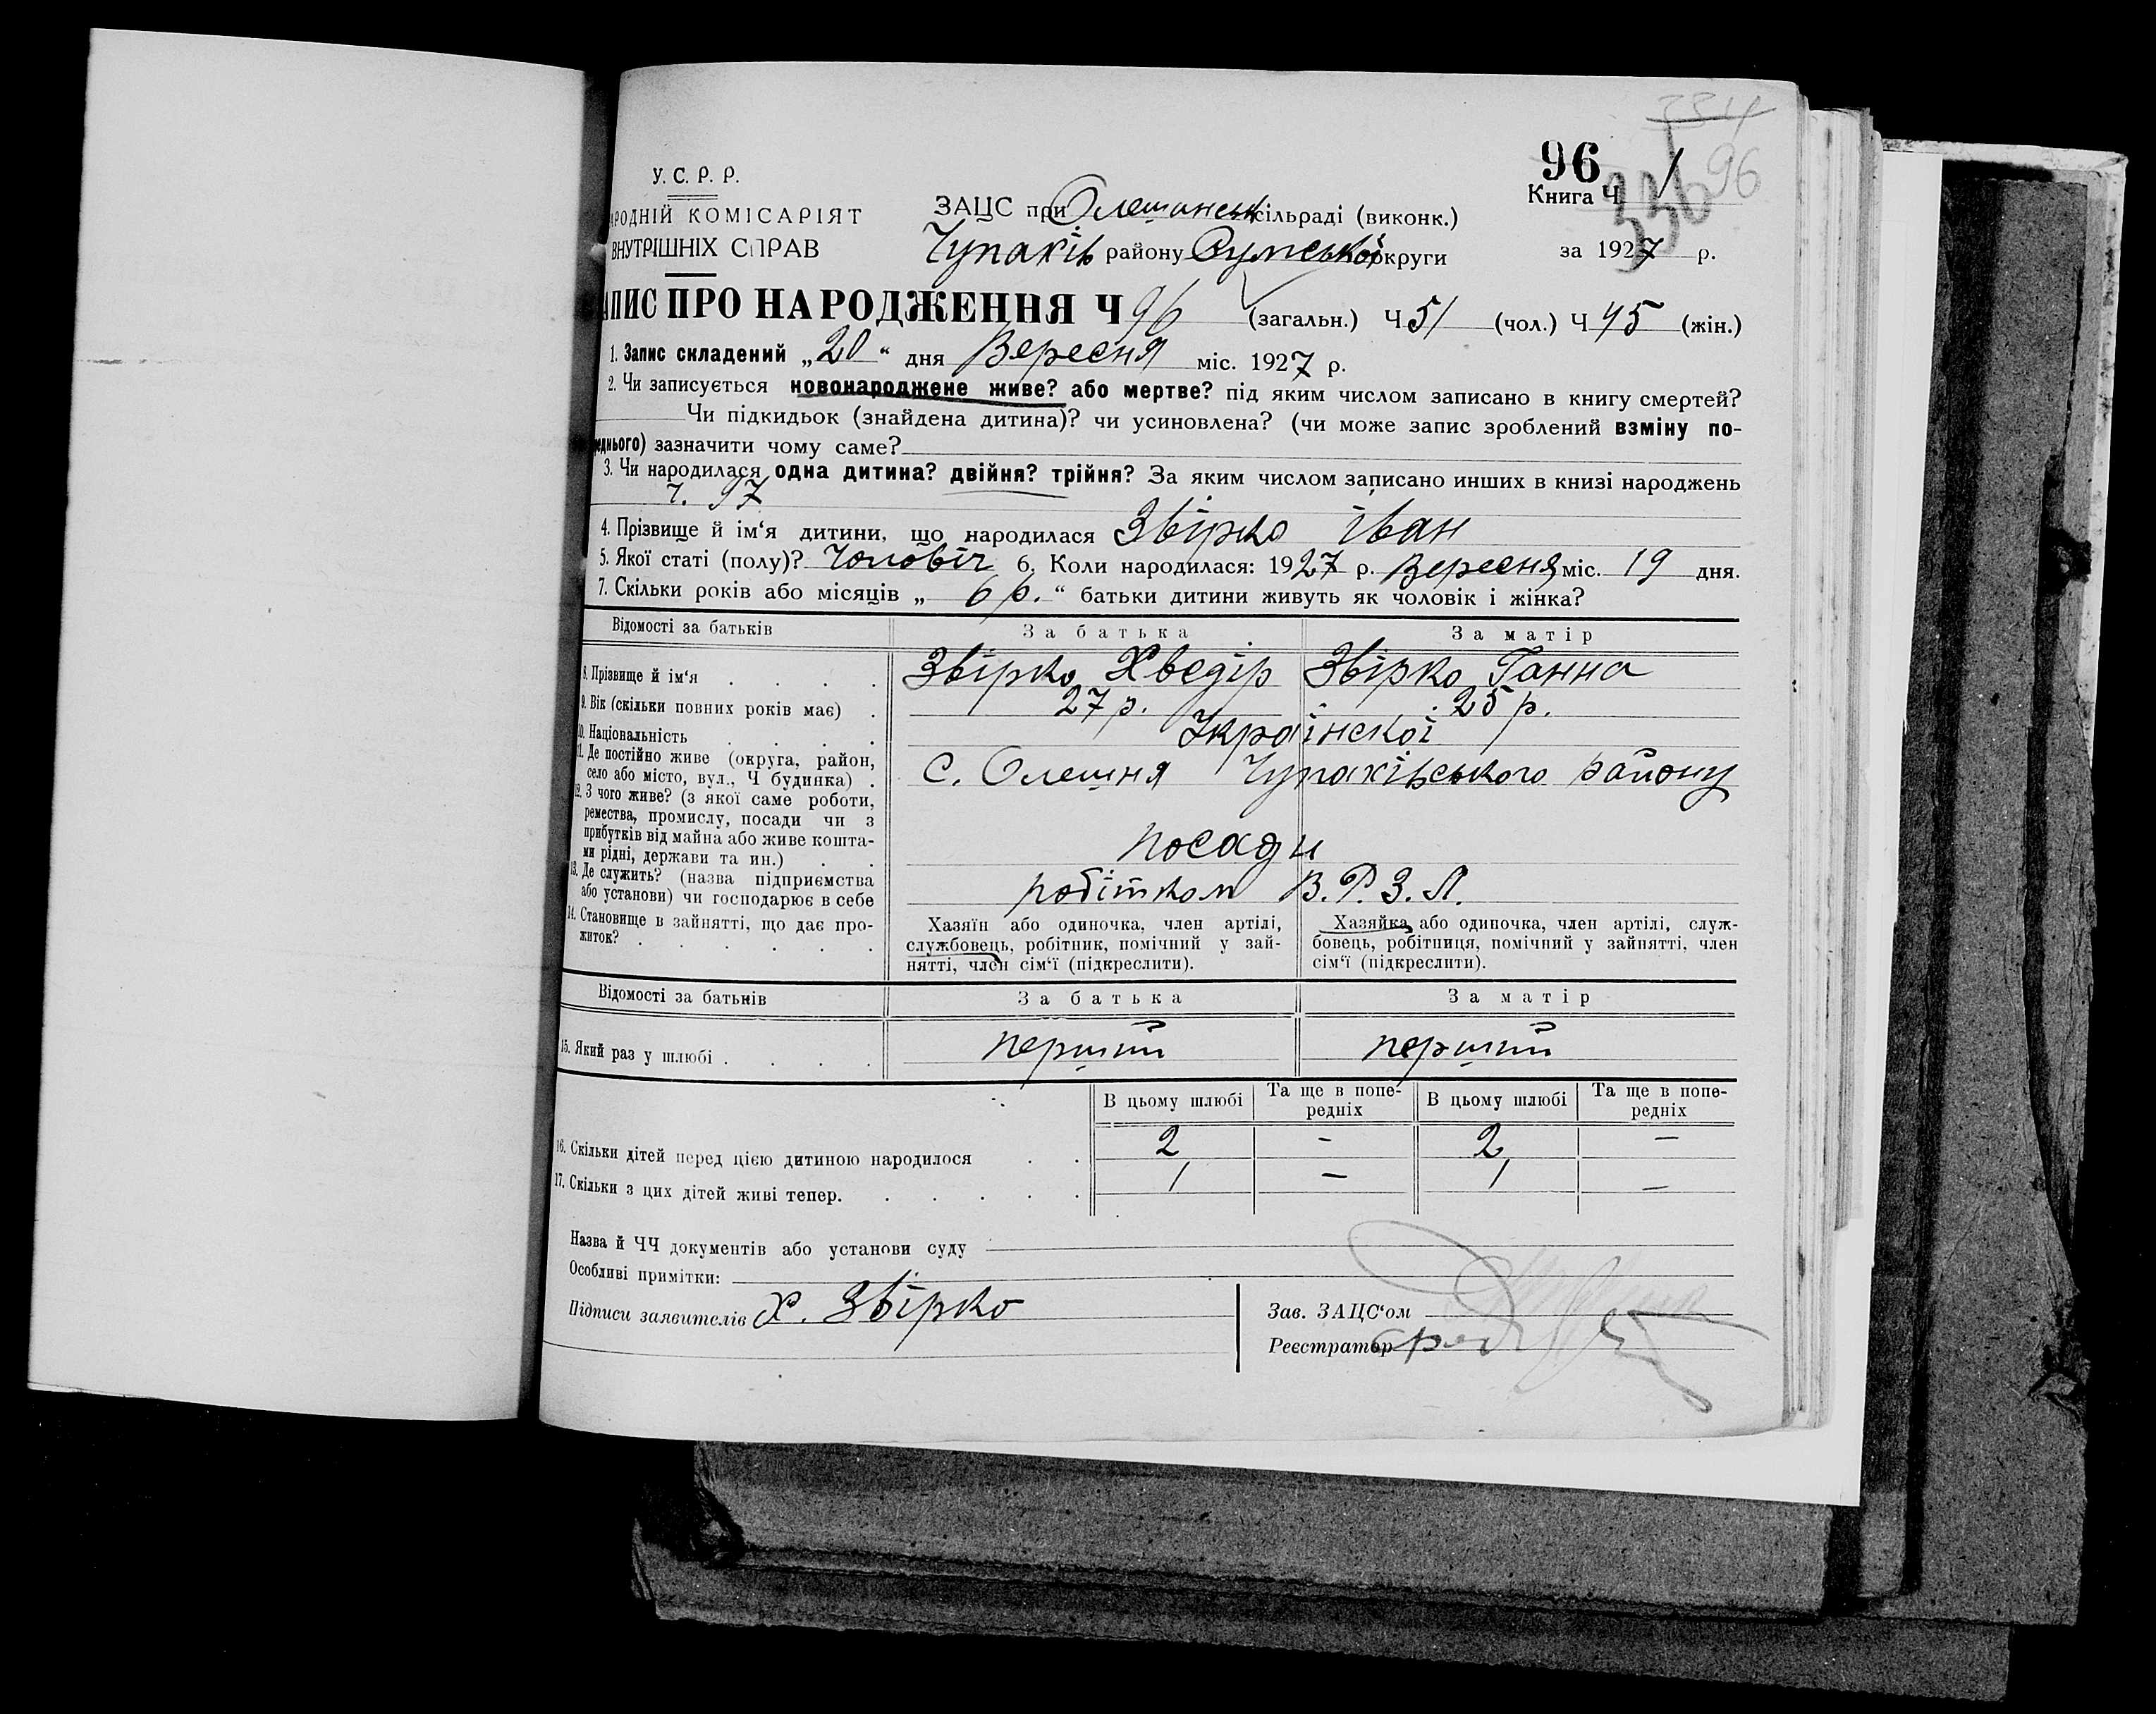 334
96
96
Книга Ч 1
336
У. С. Р. Р.
РОДНІЙ КОМІСАРІЯТ
ВНУТРІШНІХ СПРАВ
ЗАЦС при Олешанськ сільраді (виконк.)
Чупахів району Сумської округи
за 1927 р.
АПИС ПРО НАРОДЖЕННЯ Ч 96 (загальн.) Ч 51 (чол.) Ч 45 (жін.)
1. Запис складений „20“ дня Вересня міс. 1927 р.
2. Чи записується новонароджене живе? або мертве? під яким числом записано в книгу смертей?
Чи підкидьок (знайдена дитина)? чи усиновлена? (чи може запис зроблений взміну по-
еднього) зазначити чому саме?
3. Чи народилася одна дитина? двійня? трійня? За яким числом записано инших в книзі народжень
Ч. 97
4. Прізвище й ім‘я дитини, що народилася Звірко іван
5. Якої статі (полу)? Чоловіч 6. Коли народилася: 1927 р. Вересня міс. 19 дня.
7. Скільки років або місяців „ 6 р. “ батьки дитини живуть як чоловік і жінка?
Відомості за батьків За батька За матір
8. Прізвище й ім‘я Звірко Хведір Звірко Ганна
9. Вік (скільки повних років має) 27 р. 25 р.
10. Національність Украінскоі
11. Де постійно живе (округа, район,
село або місто, вул., Ч будинка) с. Олешня Чупахівського району
12. З чого живе? (з якої саме роботи,
ремества, промислу, посади чи з
прибутків від майна або живе кошта-
ми рідні, держави та ин.) посади
13. Де служить? (назва підприємства
або установи) чи господарює в себе робітком В.Р.З.Л.
14. Становище в зайнятті, що дає про-
житок?
Хазяїн або одиночка, член артілі,
службовець, робітник, помічний у зай-
нятті, член сім‘ї (підкреслити).
Хазяйка або одиночка, член артілі, служ-
бовець, робітниця, помічний у зайнятті, член
сім‘ї (підкреслити).
Відомості за батьків За батька За матір
15. Який раз у шлюбі перший перший
В цьому шлюбі Та ще в попе-
редніх В цьому шлюбі Та ще в попе-
редніх
16. Скільки дітей перед цією дитиною народилося 2 - 2 -
17. Скільки з цих дітей живі тепер. 1 - 1 -
Назва й ЧЧ документів або установи суду
Особливі примітки:
Підписи заявителів Х. Звірко
Зав. ЗАЦС‘ом
Реєстратор